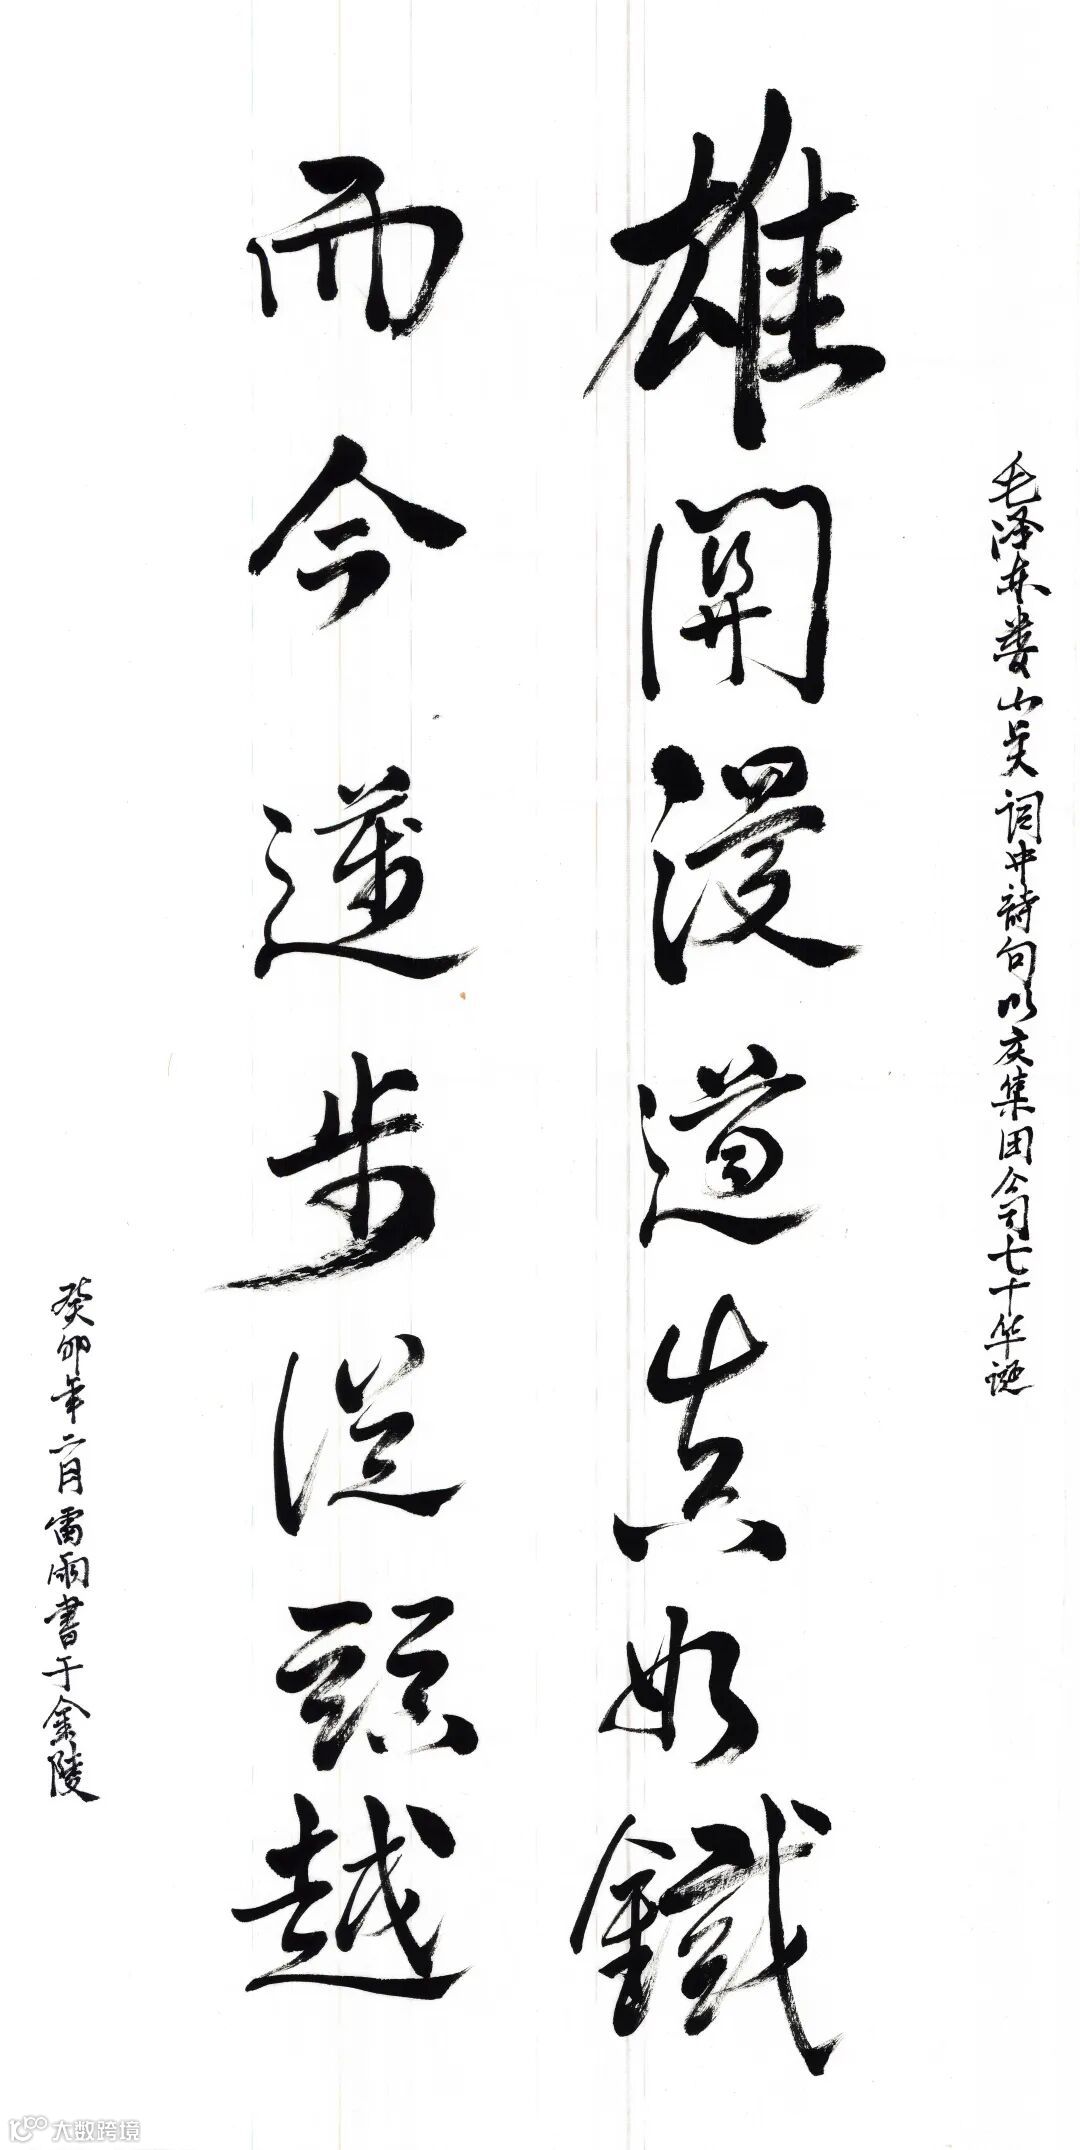 毛泽东娄山关词中詩句以庆集团公司七十华诞
雄關漫道真如鐵
而今邁步從頭越
癸卯年二月雷雨書于金陵
大数跨境